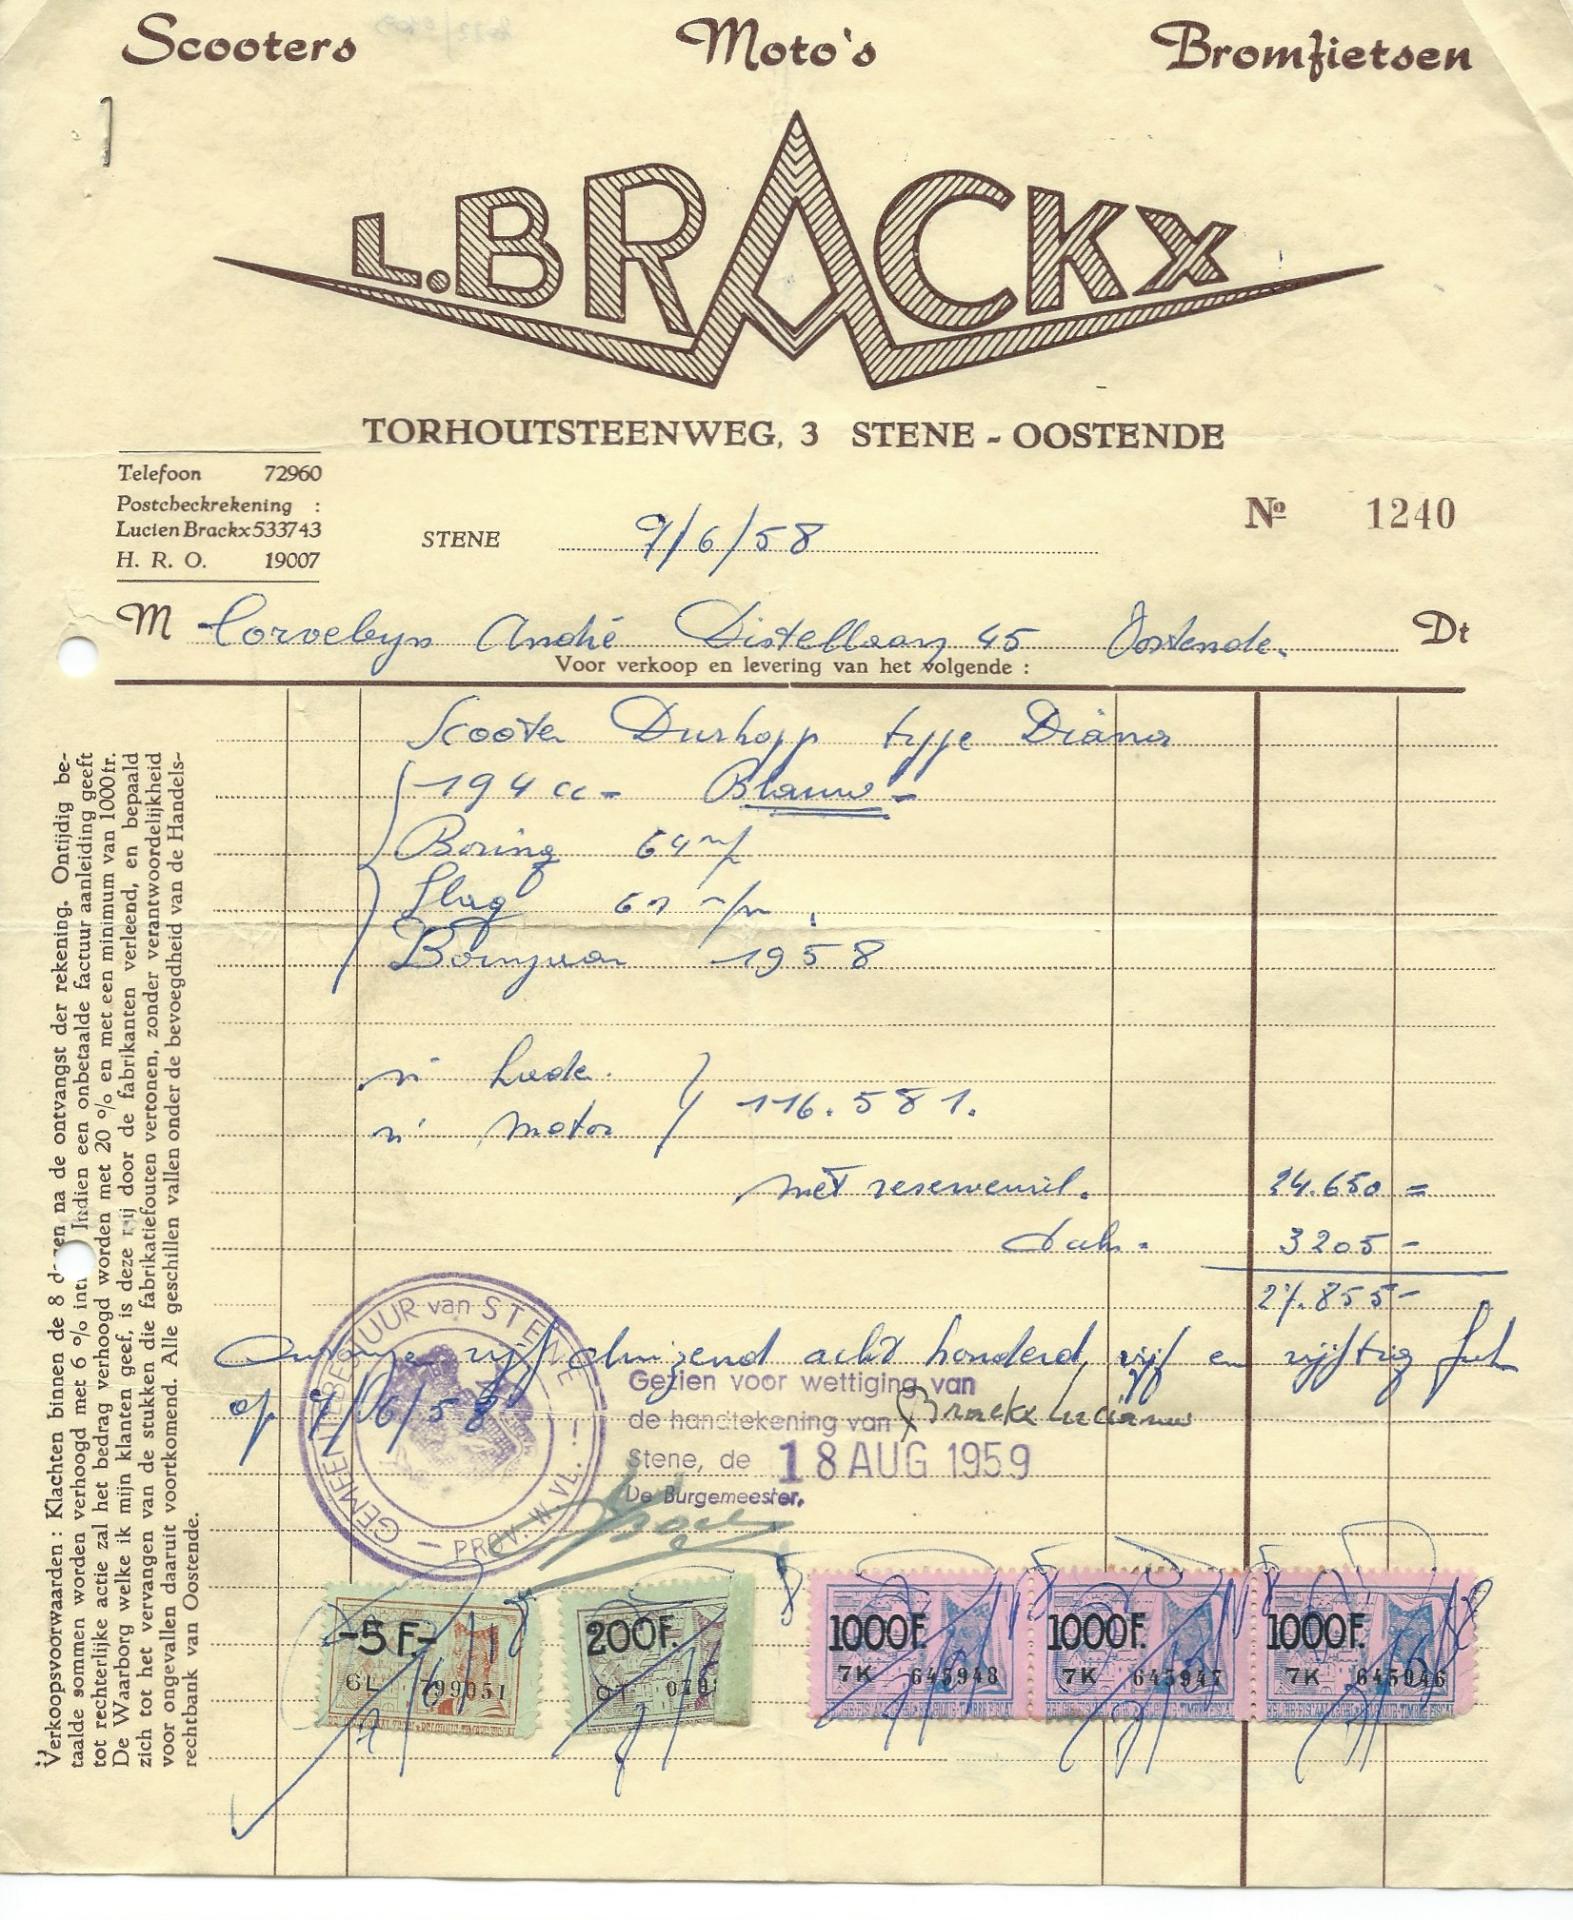 Scooters Moto's Bromfietsen
L. BRACKX
TORHOUTSTEENWEG, 3 STENE - OOSTENDE
Telefoon 72960
Postcheckrekening :
Lucien Brackx 533743
H. R. O. 19007
Nº 1240
STENE 7/6/58
M Corveleyn André Distellaan 45 Oostende. Dt
Voor verkoop en levering van het volgende :
Scooter Durkopp type Diana
194 cc - Blauw -
Boring 64 m/
Slag 61 m/m
Bouwjaar 1958
nr kader.
nr motor } 116.581.
met reservewiel. 24.650 =
taks. 3205 -
27.855 -
vijf duizend acht honderd, vijf en vijftig
op 7/6/58
GEMEENTEBESTUUR van STENE
- PROV. W. VL. -
Gezien voor wettiging van
de handtekening van Brackx Lucien
Stene, de 18 AUG 1959
De Burgemeester,
-5 F-
GL 799051
200F.
OT 070
1000F.
7K 645948
1000F.
7K 645947
1000F.
7K 645946
Verkoopsvoorwaarden : Klachten binnen de 8 d en na de ontvangst der rekening. Ontijdig be-
taalde sommen worden verhoogd met 6 % int Indien een onbetaalde factuur aanleiding geeft
tot rechterlijke actie zal het bedrag verhoogd worden met 20 % en met een minimum van 1000 fr.
De Waarborg welke ik mijn klanten geef, is deze mij door de fabrikanten verleend, en bepaald
zich tot het vervangen van de stukken die fabrikatiefouten vertonen, zonder verantwoordelijkheid
voor ongevallen daaruit voortkomend. Alle geschillen vallen onder de bevoegdheid van de Handels-
rechtbank van Oostende.